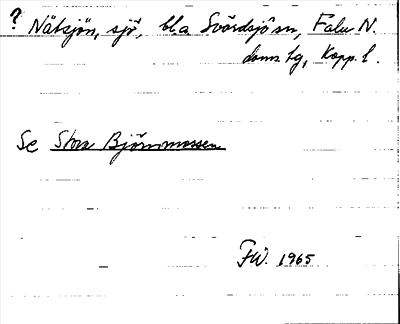 ? Nätsjön, sjö, bl.a Svärdsjö sn, Falu N.
doms.lg, Kopp. l.
Se Stora Björnmossen
FW. 1965